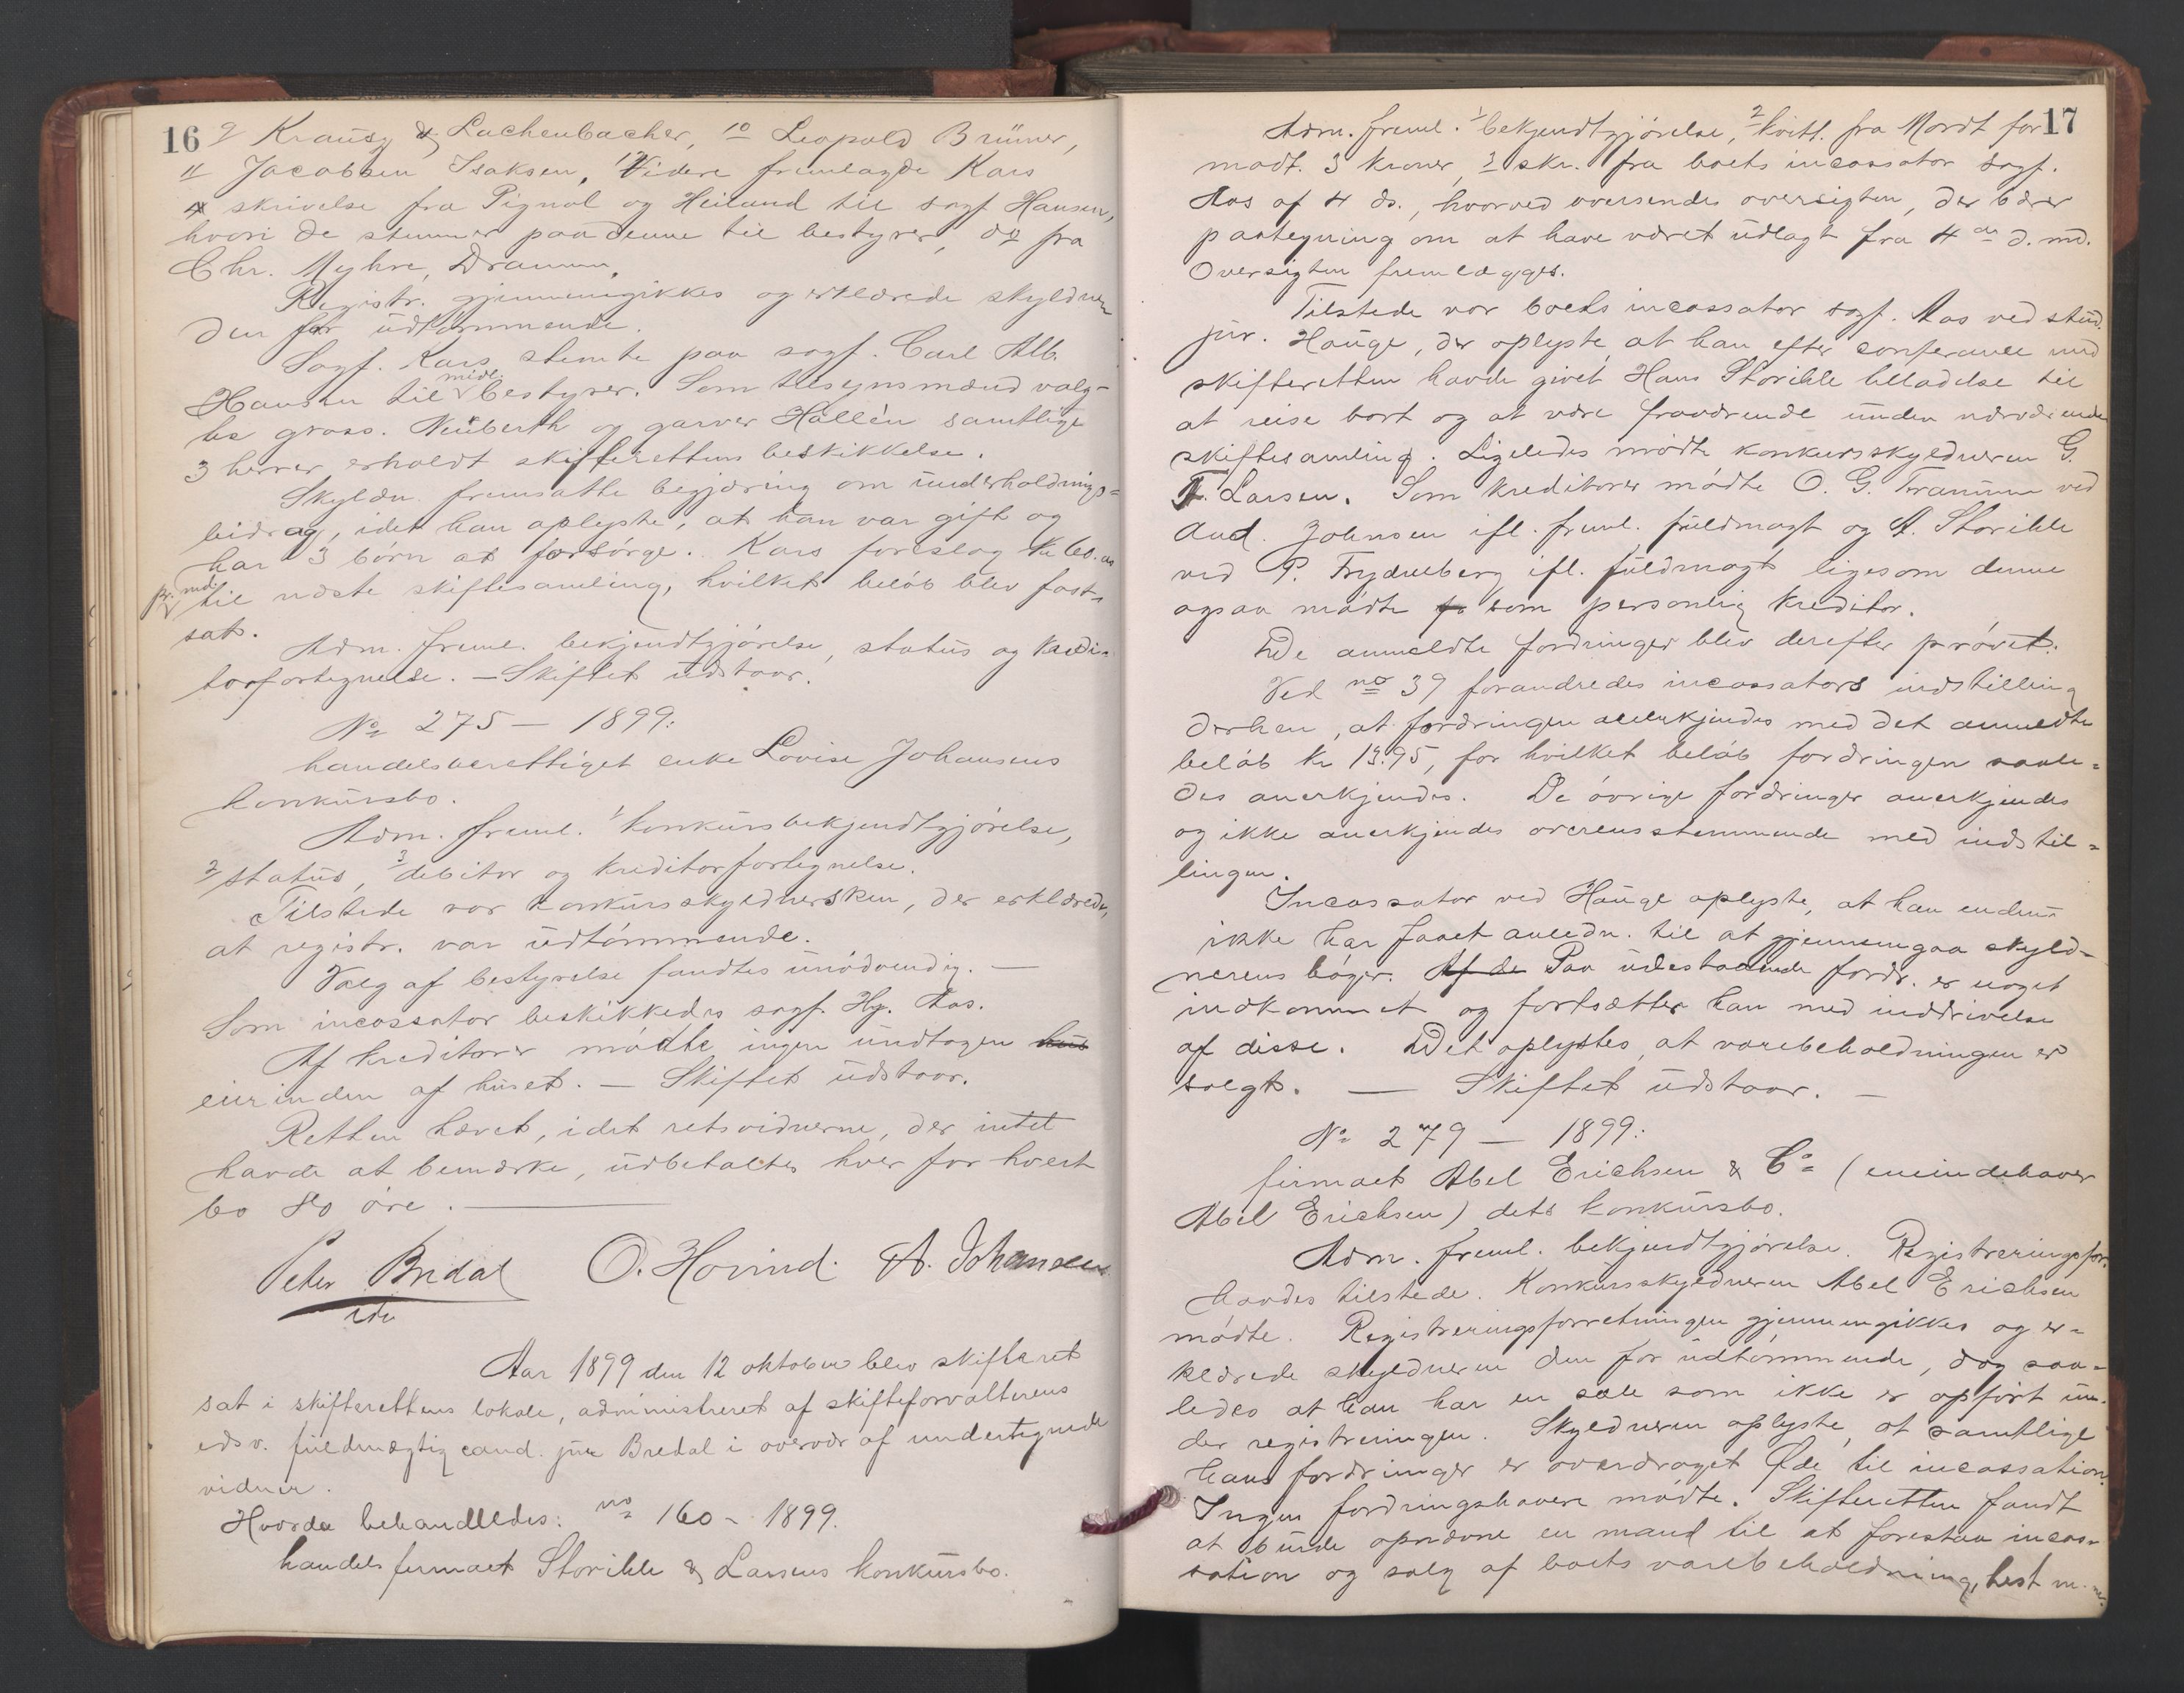 16
9 Krausz & Lachenbacher, 10 Leopold Brüner,
11 Jacobsen Isaksen, 12 Videre fremlagde Kars
skrivelse fra Pignol og Heiland til sagf. Hansen,
hvori de stemmer paa denne til bestyrer, do fra
Chr. Myhre, Drammen.
Registr. gjennemgikkes og erklærede skyldner
den for udtømmende.
Sagf. Kars stemte paa sagf. Carl Alb.
Hansen til midl. bestyrer. Som tilsynsmænd valg-
tes gross. Neuberth og garver Hallén samtlige
3 herrer erholdt skifterettens beskikkelse.
Skyldn. fremsatte begjæring om underholdnings-
bidrag, idet han oplyste, at han var gift og
har 3 børn at forsørge. Kars foreslog kr 60.00
pr. md. til næste skiftesamling, hvilket beløb blev fast-
sat.
Adm. freml. bekjendtgjørelse, status og kredi-
torfortegnelse. — Skiftet udstaar.
No 275 — 1899:
handelsberettiget enke Lovise Johansens
konkursbo.
Adm. freml. 1 konkursbekjendtgjørelse,
2 status, 3 debitor og kreditorfortegnelse.
Tilstede var konkursskyldnersken, der erklærede,
at registr. var udtømmende.
Valg af bestyrelse fandtes unødvendig. —
Som incassator beskikkedes sagf. Hj. Aas.
Af kreditorer mødte ingen undtagen
eierinden af huset. — Skiftet udstaar.
Retten hævet, idet retsvidnerne, der intet
havde at bemærke, udbetaltes hver for hvert
bo 80 øre.
Peter Bredal O. Hovind. A. Johansen
Aar 1899 den 12 oktober blev skifteret
sat i skifterettens lokale, administreret af skifteforvalterens
edsv. fuldmægtig cand. jur Bredal i overvær af undertegnede
vidner.
Hvorda behandledes: no 160 - 1899.
handelsfirmaet Storihle & Larsens konkursbo.
17
Adm. freml. 1 bekjendtgjørelse, 2 kvitt. fra Mordt for
modt. 3 kroner, 3 skr. fra boets incassator sagf.
Aas af 4 ds., hvorved oversendes oversigten, der bærer
paategning om at have været udlagt fra 4 ds d. md.
Oversigten fremlægges.
Tilstede var boets incassator sagf. Aas ved stud.
jur. Hauge, der oplyste at han efter conferance med
skifteretten havde givet Hans Storihle tilladelse til
at reise bort og at være fraværende under nærværende
skiftesamling. Ligeledes mødte konkursskyldneren G.
F. Larsen. Som kreditorer mødte O. G. Tranum ved
And. Johnsen ifl. freml. fuldmagt og A. Storihle
ved P. Frydenberg ifl. fuldmagt ligesom denne
ogsaa mødte som personlig kreditor.
De anmeldte fordringer blev derefter prøvet.
Ved no 39 forandredes incassators indstilling
derhen, at fordringen anerkjendes med det anmeldte
beløb kr 13.95, for hvilket beløb fordringen saale-
des anerkjendes. De øvrige fordringer anerkjendes
og ikke anerkjendes overensstemmende med indstil-
lingen.
Incassator ved Hauge oplyste, at han endnu
ikke har faaet anledn. til at gjennemgaa skyld-
nerens bøger. Af de Paa udestaaende fordr. er noget
indkommet og fortsætter han med inddrivelse
af disse. Det oplystes, at varebeholdningen er
solgt. — Skiftet udstaar. —
No 279 — 1899:
firmaet Abel Erichsen & Co (eneindehaver
Abel Erichsen) dets konkursbo.
Adm. freml. bekjendtgjørelse. Registreringsfor.
havdes tilstede. Konkursskyldneren Abel Erichsen
mødte. Registreringsforretningen gjennemgikkes og er-
klærede skyldneren den for udtømmende, dog saa-
ledes at han har en sæle som ikke er opført un-
der registreringen. Skyldneren oplyste, at samtlige
hans fordringer er overdraget til incassation.
Ingen fordringshavere mødte. Skifteretten fandt
at burde opnævne en mand til at forestaa incas-
sation og salg af boets varebeholdning, hest m.m.